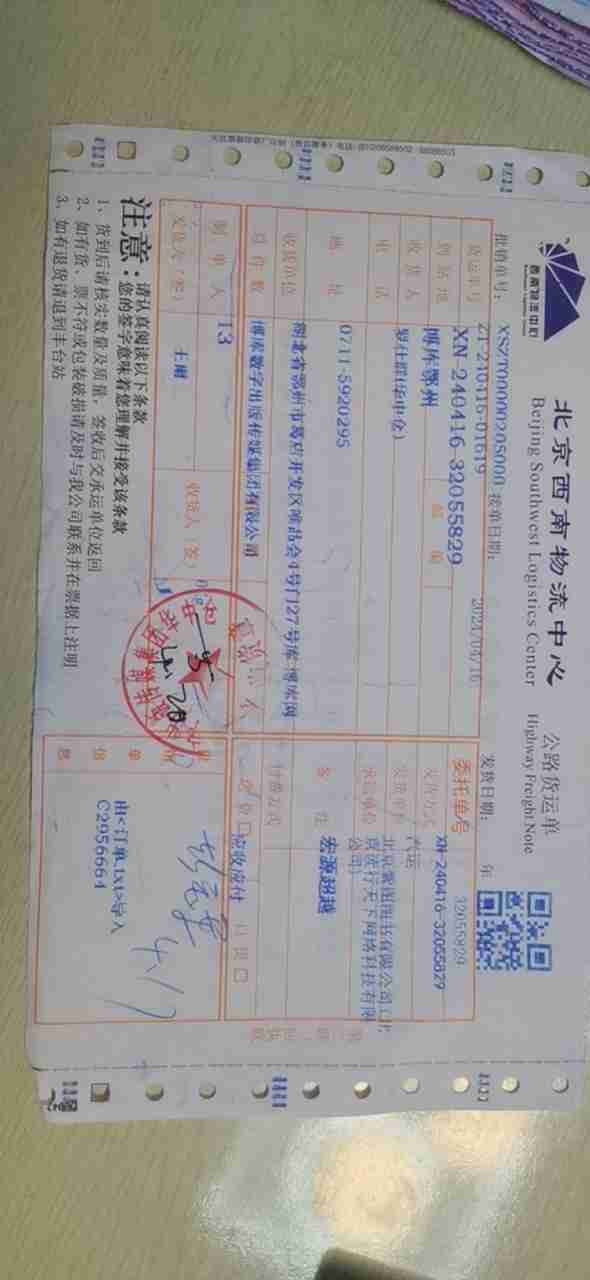 西南物流中心
北京西南物流中心
公路货运单
Beijing Southwest Logistics Center
Highway Freight Note
批销单号: XSZT00000205000 接单日期: 2024/04/16 发货日期: 年
货运单号 ZT-240416-01619
XN-240416-32055829
委托单号 32055829
XN-240416-32055829
到站地 博库鄂州 邮编
发货方式 汽运
收货人 罗仕群(华中仓)
发货单位 北京紫图图书有限公司
京次行天下网络科技有限公司)
电话
承运单位
地址 0711-5920295
备注 宏源超越
收货单位 湖北省鄂州市葛店开发区唯品会4号门27号库 博库网
付费方式
总件数 博库数字出版传媒集团有限公司
应收应付
制单人 13
发货人(签) 王刚
收货人(签)
单
信
息
由<订单.txt>导入
C2956664
4.17
注意:
请认真阅读以下条款
您的签字意味着您理解并接受该条款
1、货到后请核实数量及质量,签收后交承运单位返回
2、如有货、票不符或包装破损请及时与我公司联系并在票据上注明
3、如有退货请退到丰台站